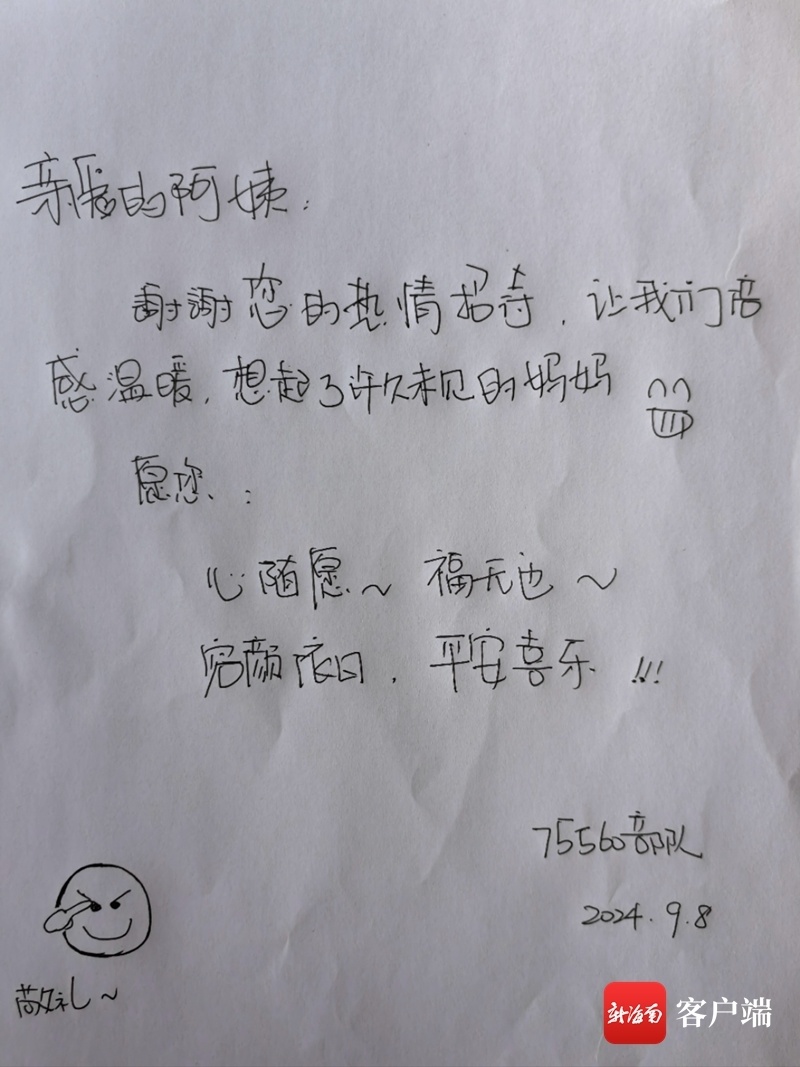 亲爱的阿姨：
谢谢您的热情招待，让我们倍
感温暖，想起了许久未见的妈妈
愿您：
心随愿～ 福无边～
容颜依旧，平安喜乐!!!
75560部队
2024.9.8
敬礼～
新海南 客户端